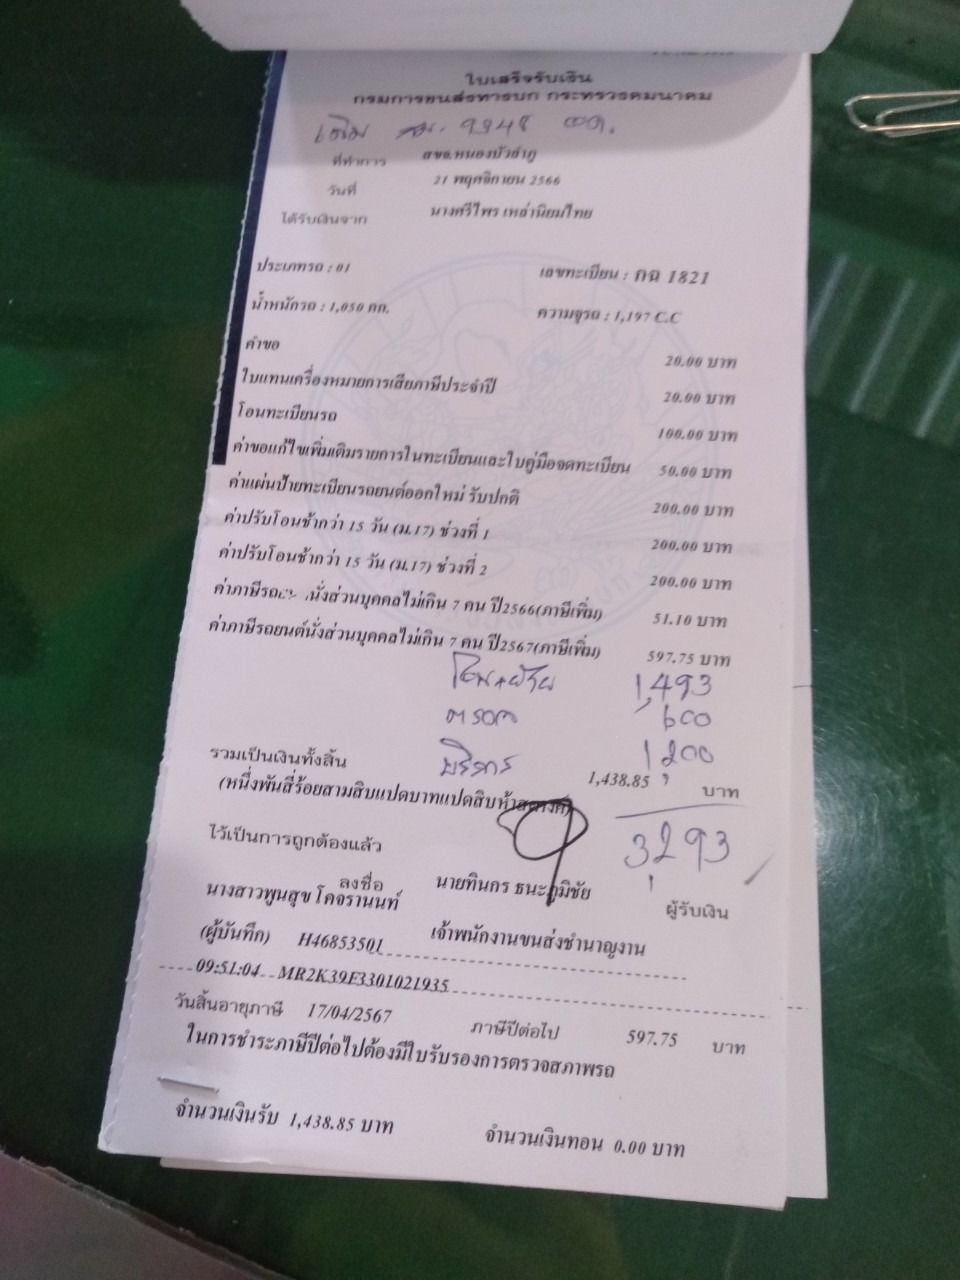 ใบเสร็จรับเงิน
กรมการขนส่งทางบก กระทรวงคมนาคม
เดิม 9948
ที่ทำการ สขจ.หนองบัวลำภู
วันที่ 21 พฤศจิกายน 2566
ได้รับเงินจาก นางศรีไพร เหล่านิยมไทย
ประเภทรถ : 01 เลขทะเบียน : กฉ 1821
น้ำหนักรถ : 1,050 กก. ความจุรถ : 1,197 C.C
คำขอ 20.00 บาท
ใบแทนเครื่องหมายการเสียภาษีประจำปี 20.00 บาท
โอนทะเบียนรถ 100.00 บาท
ค่าขอแก้ไขเพิ่มเติมรายการในทะเบียนและใบคู่มือจดทะเบียน 50.00 บาท
ค่าแผ่นป้ายทะเบียนรถยนต์ออกใหม่ รับปกติ 200.00 บาท
ค่าปรับโอนช้ากว่า 15 วัน (ม.17) ช่วงที่ 1 200.00 บาท
ค่าปรับโอนช้ากว่า 15 วัน (ม.17) ช่วงที่ 2 200.00 บาท
ค่าภาษีรถ นั่งส่วนบุคคลไม่เกิน 7 คน ปี2566(ภาษีเพิ่ม) 51.10 บาท
ค่าภาษีรถยนต์นั่งส่วนบุคคลไม่เกิน 7 คน ปี2567(ภาษีเพิ่ม) 597.75 บาท
1,493
ตรอ 600
บริการ 1,200
รวมเป็นเงินทั้งสิ้น 1,438.85 บาท
(หนึ่งพันสี่ร้อยสามสิบแปดบาทแปดสิบห้าสตางค์)
3,293
ไว้เป็นการถูกต้องแล้ว
ลงชื่อ นายทินกร ธนะภูมิชัย ผู้รับเงิน
นางสาวพูนสุข โคจรานนท์
(ผู้บันทึก) H46853501 เจ้าพนักงานขนส่งชำนาญงาน
09:51:04 MR2K39F3301021935
วันสิ้นอายุภาษี 17/04/2567 ภาษีปีต่อไป 597.75 บาท
ในการชำระภาษีปีต่อไปต้องมีใบรับรองการตรวจสภาพรถ
จำนวนเงินรับ 1,438.85 บาท จำนวนเงินทอน 0.00 บาท